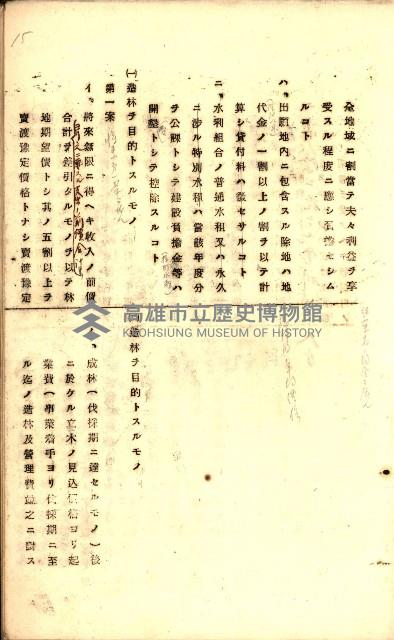 15
全地域ニ割當テ夫々利益ヲ享
受スル程度ニ應シ負擔セシム
ルコト
ハ、出願地内ニ包含スル除地ハ地
代金ノ一割以上ノ割ヲ以テ計
算シ貸付料ハ徵セサルコト
ニ、水利組合ノ普通水租又ハ永久
ニ涉ル特別水租ハ當該年度分
ヲ公課トシテ建設負擔金等ハ
開墾トシテ控除スルコト
(一)造林ヲ目的トスルモノ
第一案
イ、將來無限ニ得ヘキ收入ノ前價
合計ヲ差引タルモノヲ以テ林
地期望價トシ其ノ五割以上ヲ
賣渡豫定價格トナシ賣渡豫定
造林ヲ目的トスルモノ
成林(伐採期ニ達セルモノ)後
ニ於ケル立木ノ見込價格ヨリ起
業費(事業着手ヨリ伐採期ニ至
ル迄ノ造林及管理費並之ニ對ス
高雄市立歷史博物館
KAOHSIUNG MUSEUM OF HISTORY